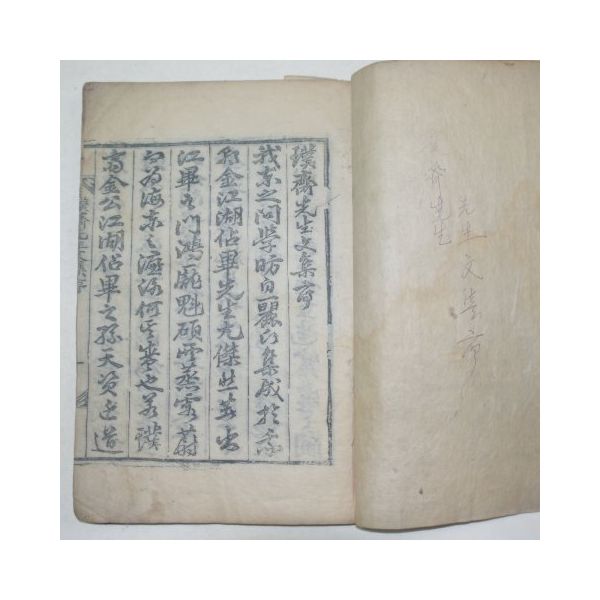 先生文集序
齋先生
璞齋先生文集序
我東之問學昉自麗氏集成於
金江湖佔畢先生尤傑然並出
江畢之門鴻厖魁碩雲蒸雯蔚
為海東之濂洛何其盛也若璞
齋金公江湖佔畢之孫天資近道
璞齋先生文集序